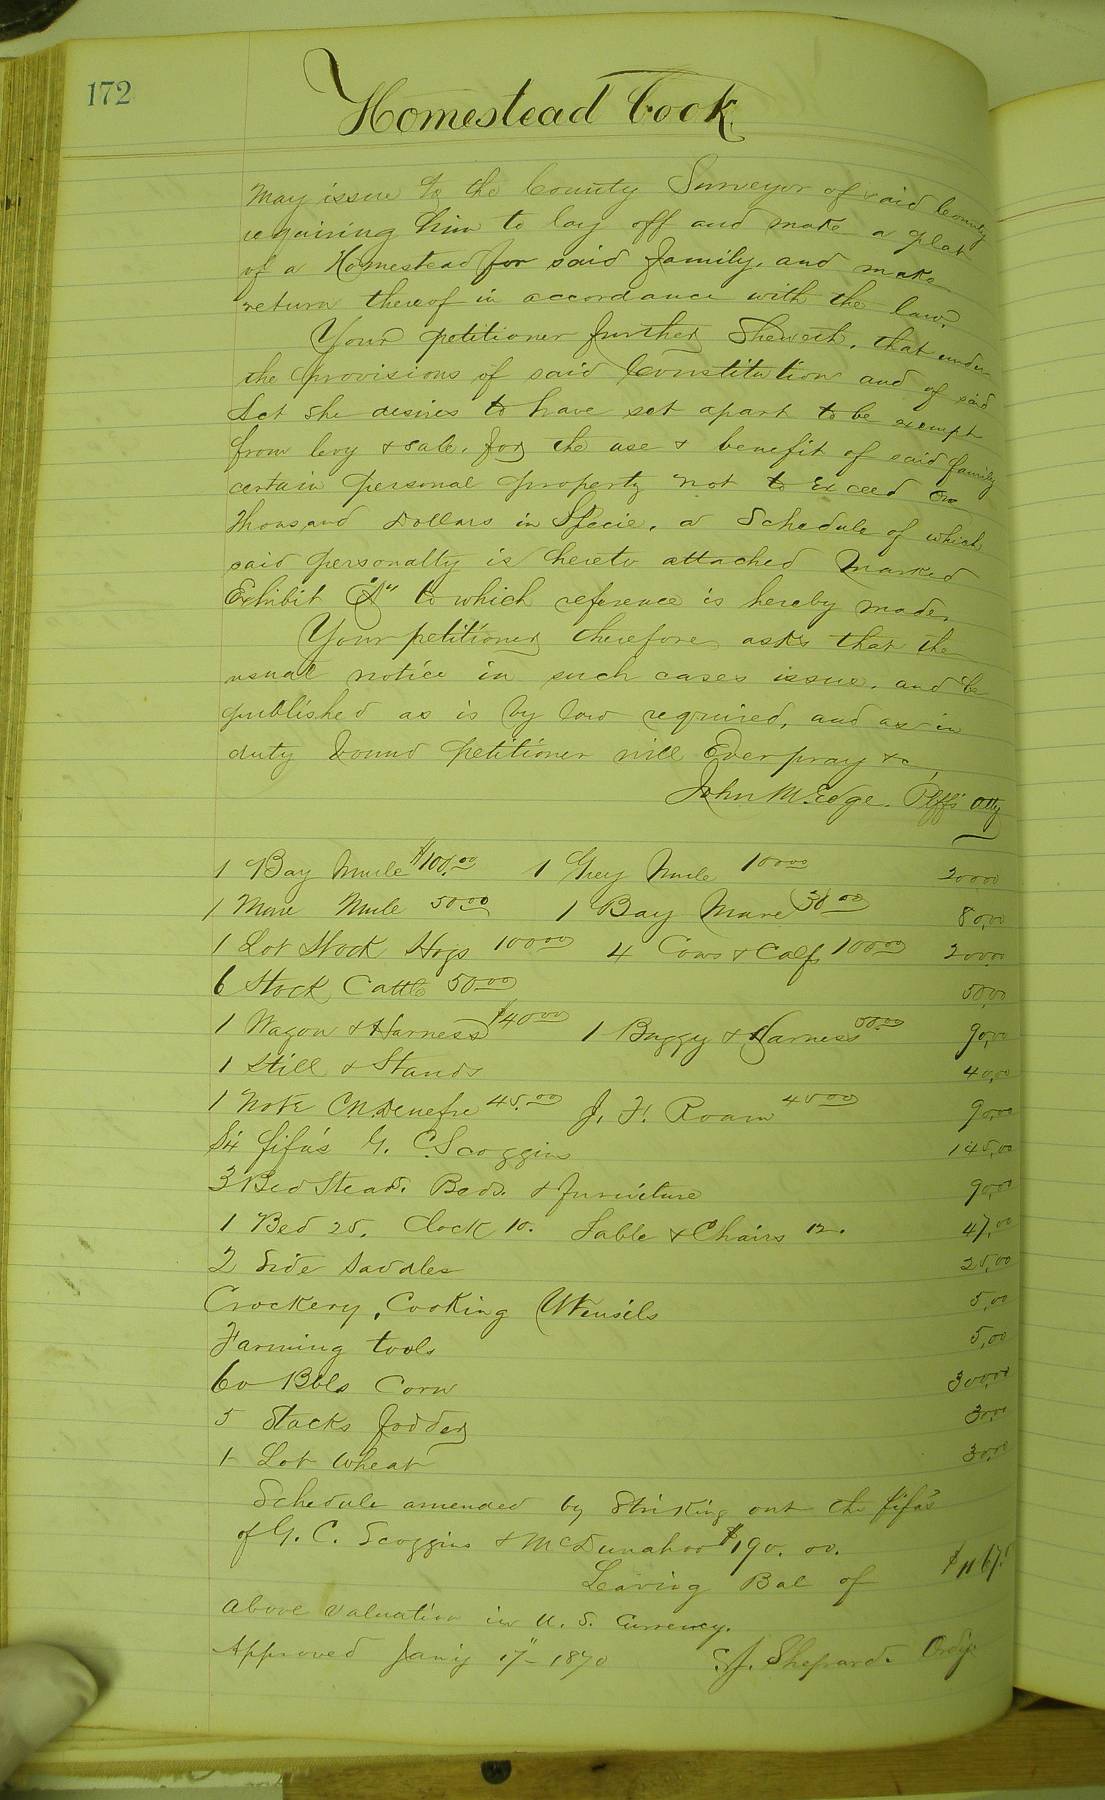 172
Homestead Book.
May issue to the County Surveyor of said County
requiring him to lay off and make a plat
of a Homestead for said family, and make
return thereof in accordance with the law.
Your petitioner further Sheweth, that under
the provisions of said Constitution and of said
Act She desires to have set apart to be exempt
from levy & sale, for the use & benefit of said family
certain personal property not to exceed One
Thousand Dollars in Specie, a Schedule of which
said personalty is hereto attached marked
Exhibit "A" to which reference is hereby made.
Your petitioner therefore asks that the
usual notice in such cases issue, and be
published as is by law required, and as in
duty bound petitioner will Ever pray &c
John M. Edge. Plffs Atty
1 Bay Mule $100.00 1 Grey Mule 100.00 200.00
1 Mare Mule 50.00 1 Bay Mare 30.00 80.00
1 Lot Stock Hogs 100.00 4 Cows & Calf 100.00 200.00
6 Stock Cattle 50.00 50.00
1 Wagon & Harness $40.00 1 Buggy & Harness 50.00 90.00
1 Still & Stands 40.00
1 Note 45.00 J. F. Roam 45.00 90.00
Six fifa's G. C. Scoggins 145.00
3 Bed Steads. Beds. & furniture 90.00
1 Bed 25. Clock 10. Table & Chairs 12. 47.00
2 Side Saddles 25.00
Crockery, Cooking Utensils 5.00
Farming tools 5.00
60 Bbls Corn 300.00
5 Stacks fodder 30.00
1 Lot Wheat 30.00
Schedule amended by Striking out the fifa's
of G. C. Scoggins & McDunahoo $190.00.
Leaving Bal of $1167.
above valuation in U. S. Currency.
Approved Jan'y 17" 1870 S. J. Shepard. Ord'y.